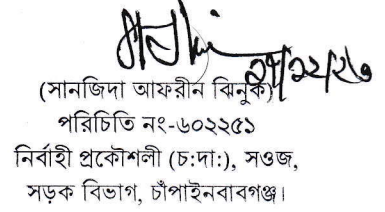 (সানজিদা আফরীন ঝিনুক)
পরিচিতি নং-৬০২২৫১
নির্বাহী প্রকৌশলী (চ:দা:), সওজ,
সড়ক বিভাগ, চাঁপাইনবাবগঞ্জ।